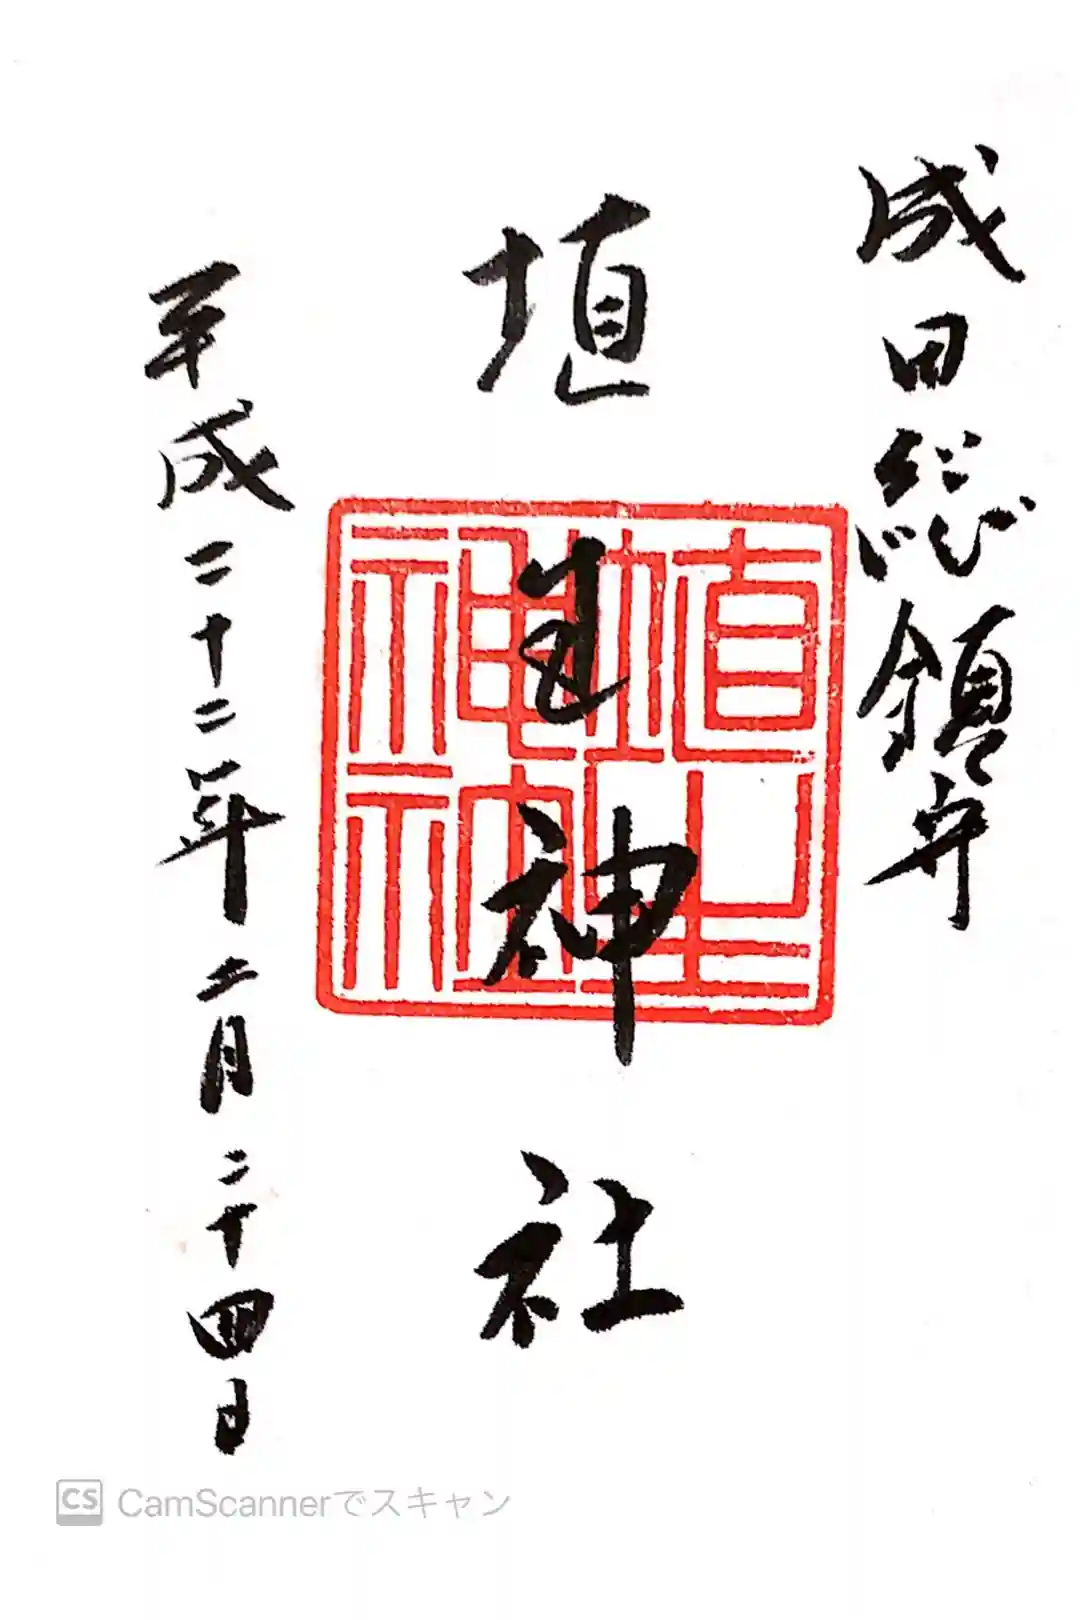 成田総鎮守
埴生神社
埴生神社
平成二十二年二月二十四日
CS CamScannerでスキャン